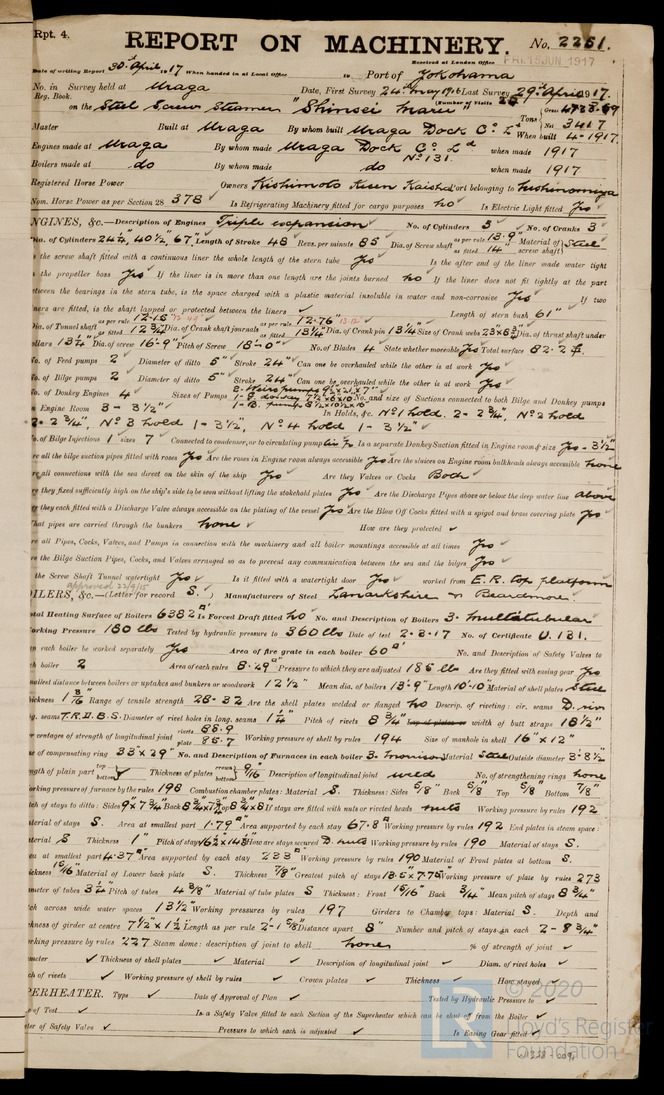 Rpt. 4.
REPORT ON MACHINERY. No. 2251.
Received at London Office FRI. 15 JUN 1917
Date of writing Report 30th April 1917 When handed in at Local Office to Port of Yokohama
No. in Survey held at Uraga Date, First Survey 24th May 1916 Last Survey 29th April 1917.
Reg. Book. (Number of Visits
on the Steel Screw Steamer "Shinsei Maru" Tons Gross 4733.69
Net 3417
Master Built at Uraga By whom built Uraga Dock Co. Ld When built 4-1917.
Engines made at Uraga By whom made Uraga Dock Co. Ld No 131. when made 1917
Boilers made at do By whom made do when made 1917
Registered Horse Power Owners Kishimoto Kisen Kaisha Port belonging to
Nom. Horse Power as per Section 28 378 Is Refrigerating Machinery fitted for cargo purposes no Is Electric Light fitted Yes
ENGINES, &c.—Description of Engines Triple expansion No. of Cylinders 3 No. of Cranks 3
Dia. of Cylinders 24½", 40½", 67" Length of Stroke 48 Revs. per minute 85 Dia. of Screw shaft as per rule 13.9" as fitted 14" Material of screw shaft Steel
Is the screw shaft fitted with a continuous liner the whole length of the stern tube Yes Is the after end of the liner made water tight
in the propeller boss Yes If the liner is in more than one length are the joints burned no If the liner does not fit tightly at the part
between the bearings in the stern tube, is the space charged with a plastic material insoluble in water and non-corrosive Yes If two
liners are fitted, is the shaft lapped or protected between the liners Length of stern bush 61"
Dia. of Tunnel shaft as per rule 12.15 as fitted 12¾" Dia. of Crank shaft journals as per rule 12.76" as fitted 13¼" Dia. of Crank pin 13¼" Size of Crank webs Dia. of thrust shaft under
collars 13¼" Dia. of screw 16'-9" Pitch of Screw 18'-0" No. of Blades 4 State whether moveable Yes Total surface 82.2
No. of Feed pumps 2 Diameter of ditto 5" Stroke 24" Can one be overhauled while the other is at work Yes
No. of Bilge pumps 2 Diameter of ditto 5" Stroke 24" Can one be overhauled while the other is at work Yes
No. of Donkey Engines 4 Sizes of Pumps No. and size of Suctions connected to both Bilge and Donkey pumps
In Engine Room 3 - 3½" In Holds, &c. No 1 hold, 2 - 2¾", No 2 hold
2 - 2¾", No 3 hold 1 - 3½", No 4 hold 1 - 3½"
No. of Bilge Injections 1 sizes 7 Connected to condenser, or to circulating pump Yes Is a separate Donkey Suction fitted in Engine room & size Yes - 3½"
Are all the bilge suction pipes fitted with roses Yes Are the roses in Engine room always accessible Yes Are the sluices on Engine room bulkheads always accessible none
Are all connections with the sea direct on the skin of the ship Yes Are they Valves or Cocks Both
Are they fixed sufficiently high on the ship's side to be seen without lifting the stokehold plates Yes Are the Discharge Pipes above or below the deep water line above
Are they each fitted with a Discharge Valve always accessible on the plating of the vessel Yes Are the Blow Off Cocks fitted with a spigot and brass covering plate Yes
What pipes are carried through the bunkers none How are they protected
Are all Pipes, Cocks, Valves, and Pumps in connection with the machinery and all boiler mountings accessible at all times Yes
Are the Bilge Suction Pipes, Cocks, and Valves arranged so as to prevent any communication between the sea and the bilges Yes
Is the Screw Shaft Tunnel watertight Yes Is it fitted with a watertight door Yes worked from E.R. top platform
approved 22/9/15
BOILERS, &c.—(Letter for record S.) Manufacturers of Steel Lanarkshire or Beardmore.
Total Heating Surface of Boilers 6382 Is Forced Draft fitted no No. and Description of Boilers 3. multitubular
Working Pressure 180 lbs Tested by hydraulic pressure to 360 lbs Date of test 2-3-17 No. of Certificate U. 131.
Can each boiler be worked separately Yes Area of fire grate in each boiler 60 No. and Description of Safety Valves to
each boiler 2 Area of each valve 8.29" Pressure to which they are adjusted 185 lbs Are they fitted with easing gear Yes
Smallest distance between boilers or uptakes and bunkers or woodwork 12½" Mean dia. of boilers 13'-9" Length 10'-10" Material of shell plates Steel
Thickness Range of tensile strength 28-32 Are the shell plates welded or flanged no Descrip. of riveting: cir. seams D. riv
long. seams T.R.D.B.S. Diameter of rivet holes in long. seams 1¼" Pitch of rivets 8¾" width of butt straps 18½"
Percentages of strength of longitudinal joint rivets 88.9 plate 85.7 Working pressure of shell by rules 194 Size of manhole in shell 16" × 12"
Size of compensating ring 33" × 29" No. and Description of Furnaces in each boiler 3. Morrison Material Steel Outside diameter 3'-8½"
Length of plain part top bottom Thickness of plates crown bottom 9/16 Description of longitudinal joint weld No. of strengthening rings none
Working pressure of furnace by the rules 198 Combustion chamber plates: Material S. Thickness: Sides 5/8" Back 5/8" Top 5/8" Bottom 7/8"
Pitch of stays to ditto: Sides 9 × 7¾" Back 8¾ × 7¾" Top 8¾ × 8" If stays are fitted with nuts or riveted heads nuts Working pressure by rules 192
Material of stays S. Area at smallest part 1.79" Area supported by each stay 67.8 Working pressure by rules 192 End plates in steam space:
Material S Thickness 1" Pitch of stays How are stays secured D. nuts Working pressure by rules 190 Material of stays S.
Area at smallest part 4.37" Area supported by each stay 233 Working pressure by rules 190 Material of Front plates at bottom S.
Thickness 15/16" Material of Lower back plate S. Thickness 7/8" Greatest pitch of stays 13.5" × 7.75" Working pressure of plate by rules 273
Diameter of tubes 3¼" Pitch of tubes 4 3/8" Material of tube plates S Thickness: Front 15/16" Back 3/4" Mean pitch of stays 8¾"
Pitch across wide water spaces 13½" Working pressures by rules 197 Girders to Chamber tops: Material S. Depth and
thickness of girder at centre 7½" × 1½" Length as per rule 2'-1 5/8" Distance apart 8" Number and pitch of stays in each 2 - 8¾"
Working pressure by rules 227 Steam dome: description of joint to shell none % of strength of joint
Diameter Thickness of shell plates Material Description of longitudinal joint Diam. of rivet holes
Pitch of rivets Working pressure of shell by rules Crown plates Thickness How stayed
SUPERHEATER. Type Date of Approval of Plan Tested by Hydraulic Pressure to
Date of Test Is a Safety Valve fitted to each Section of the Superheater which can be shut off from the Boiler
Diameter of Safety Valve Pressure to which each is adjusted Is Easing Gear fitted
© 2020
Lloyd's Register
Foundation